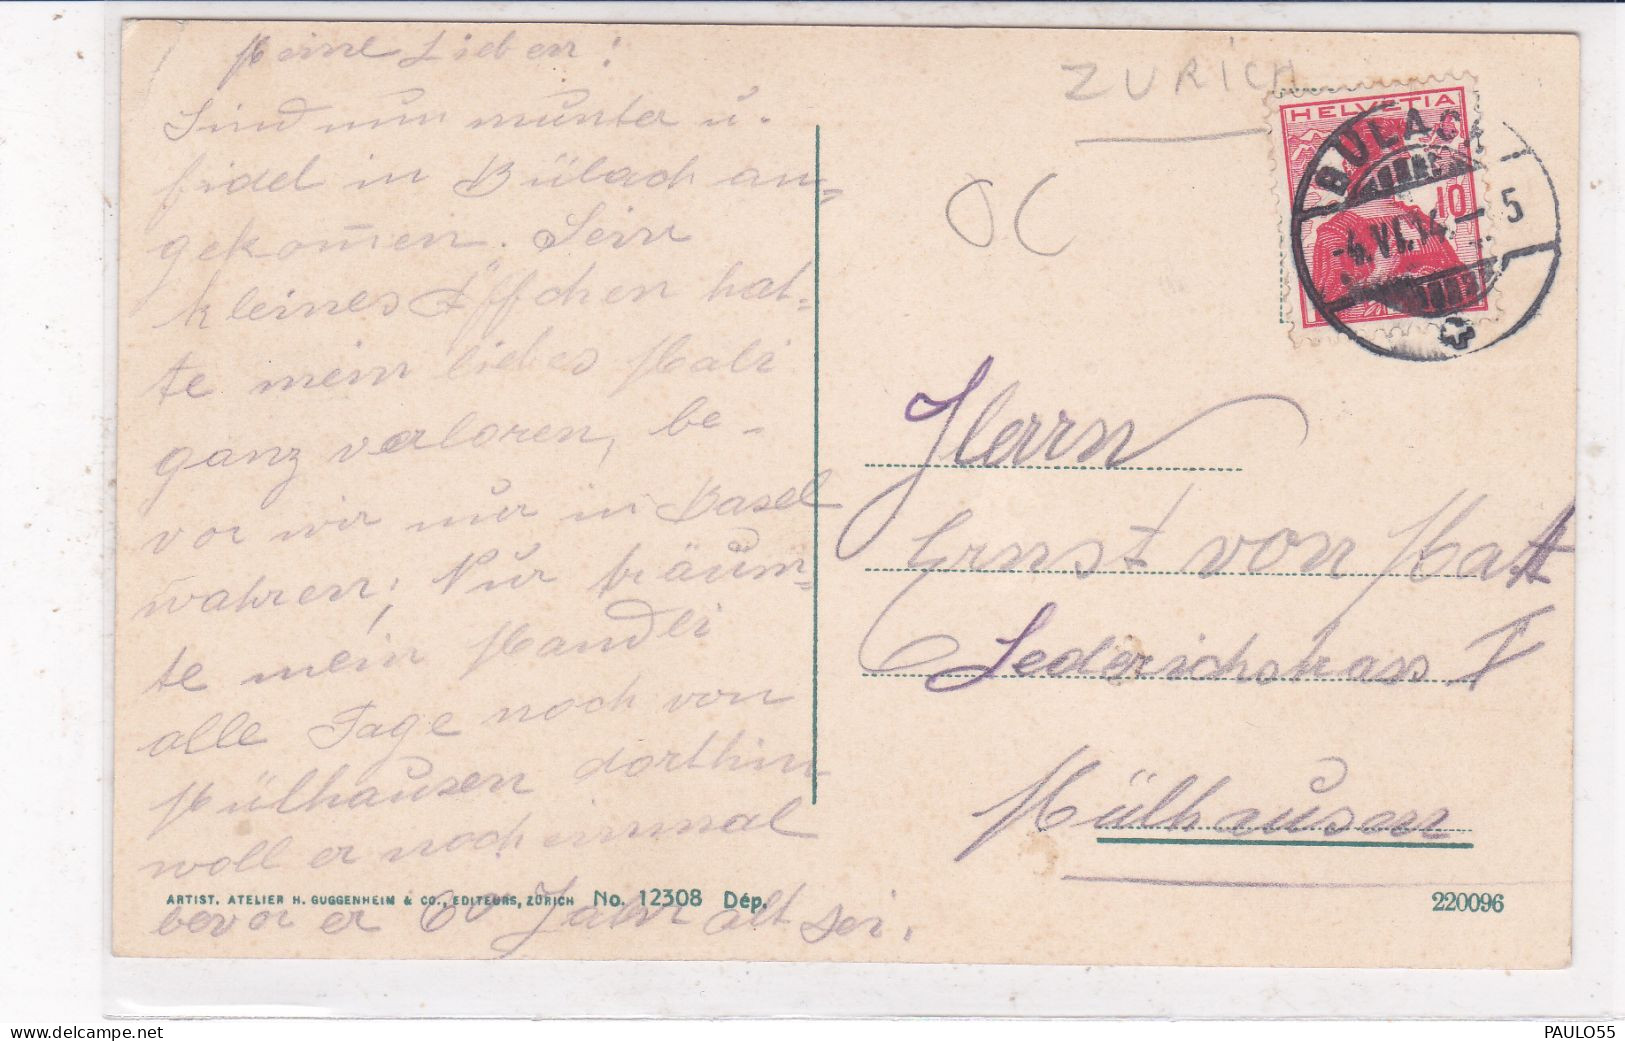 Meine Lieben!
Sind nun munter u.
fidel in Bülach an-
gekom̄en. Sein
kleines Äffchen hat-
te mein liebes Mali
ganz verloren, be-
vor wir nur in Basel
wahren; Nur träum-
te mein Mandli
alle Tage noch von
Mülhausen dorthin
woll er noch einmal
bevor er 60 Jahr alt sei.
ARTIST. ATELIER H. GUGGENHEIM & CO., EDITEURS, ZÜRICH No. 12308 Dép.
ZURICH
OC
HELVETIA
10
BÜLACH
-4.VI.14.- 5
Herrn
Ernst von Matt
Mülhausen
220096
PAULO55
www.delcampe.net